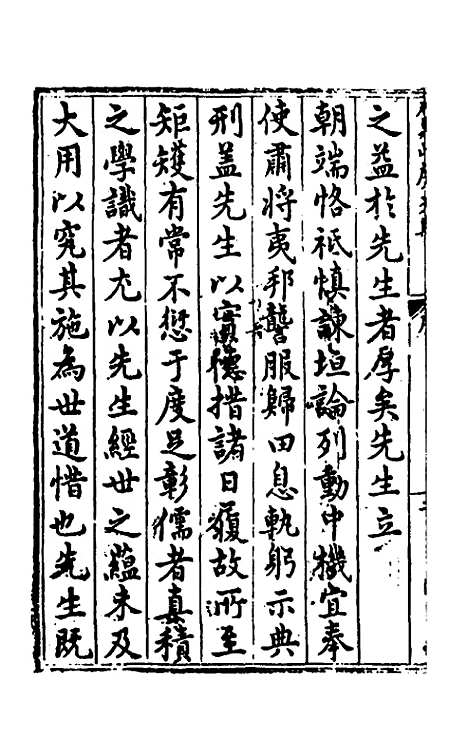 之益於先生者厚矣先生立
朝端恪祗慎諫垣論列動中機宜奉
使肅將夷邦讋服歸田息軌躬示典
刑盖先生以實德措諸日履故所至
矩矱有常不愆于度足彰儒者真積
之學識者尤以先生經世之蘊未及
大用以究其施為世道惜也先生既